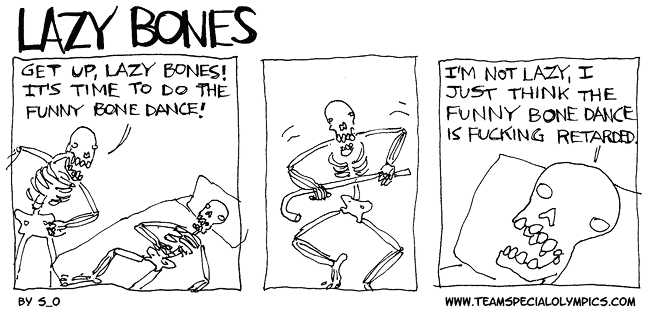 LAZY BONES
GET UP, LAZY BONES!
IT'S TIME TO DO THE
FUNNY BONE DANCE!
I'M NOT LAZY, I
JUST THINK THE
FUNNY BONE DANCE
IS FUCKING RETARDED.
BY S_O
WWW.TEAMSPECIALOLYMPICS.COM